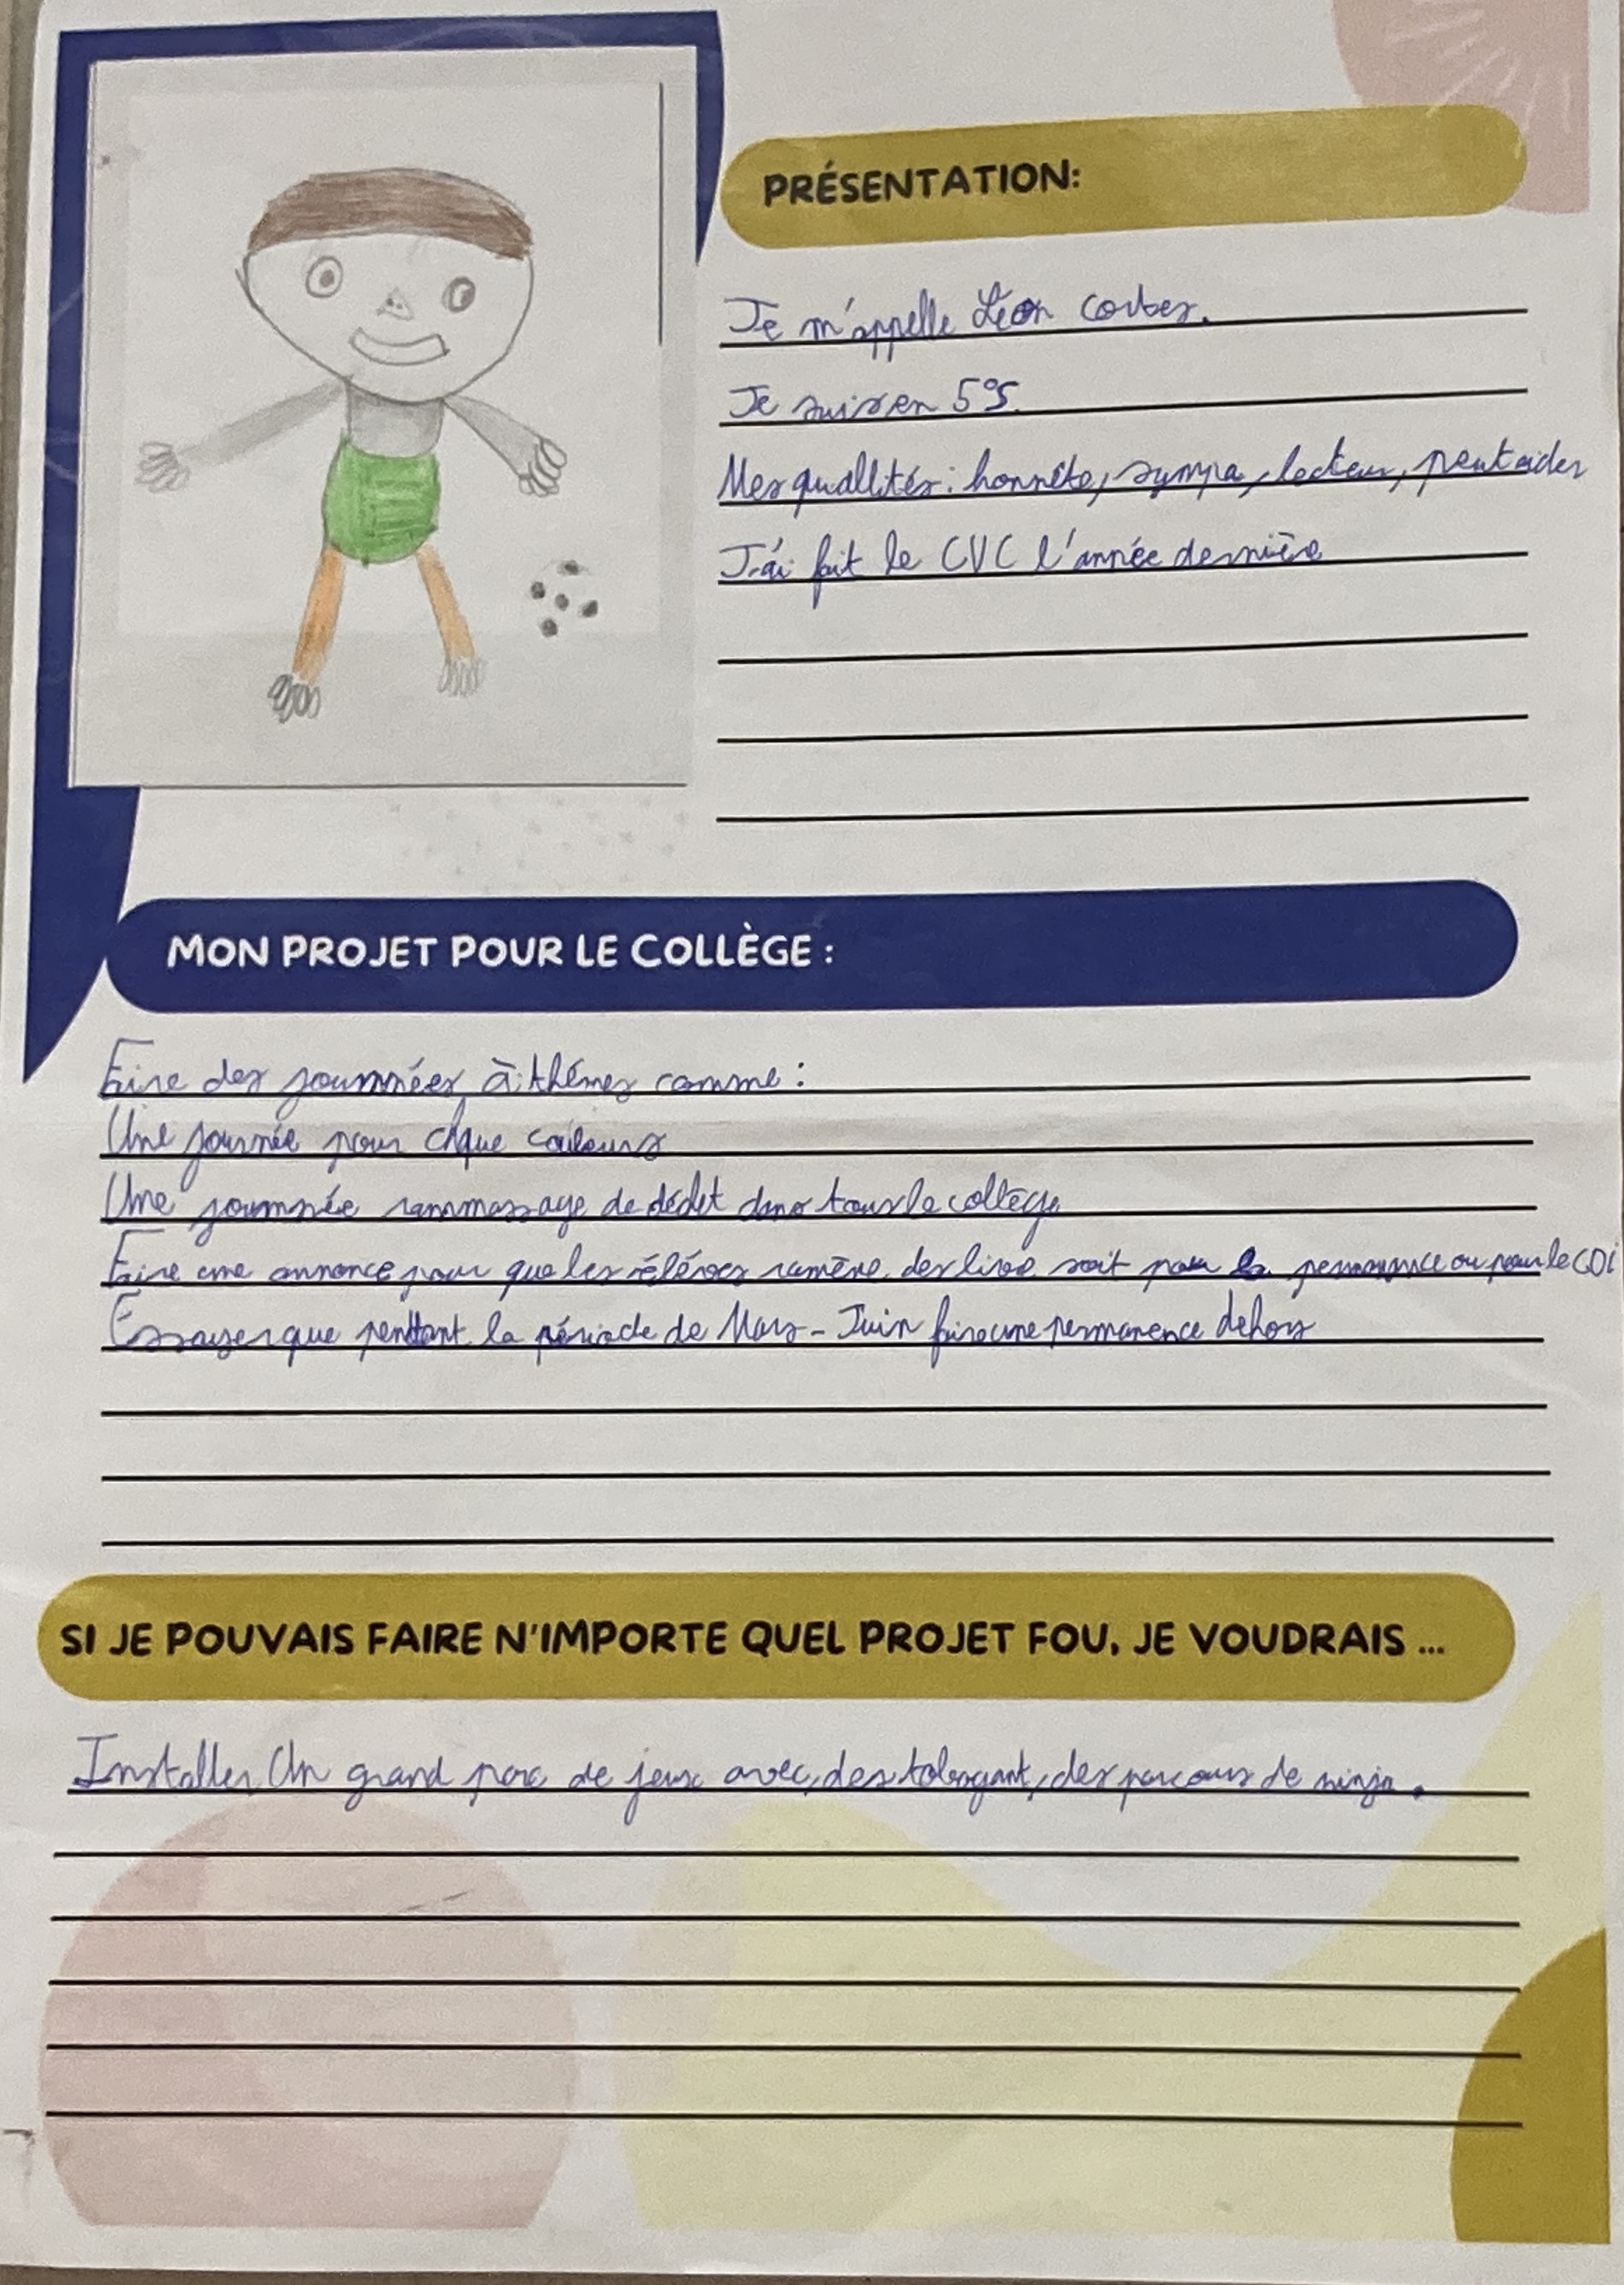 PRÉSENTATION:
Je m'appelle Léon
Je suis en 5°5.
Mes quallités : honnête, sympa, lecteur, peut aider
J'ai fait le CVC l'année dernière
MON PROJET POUR LE COLLÈGE :
Faire des journées à thémes comme :
Une journée pour chque couleurs
Une journée rammassage de déchet dans tous le collège
Faire une annonce pour que les éléves ramène des livre soit pour la permanence ou pour le CDI
Essayer que pendant la période de Mars - Juin faire une permanence dehors
SI JE POUVAIS FAIRE N'IMPORTE QUEL PROJET FOU, JE VOUDRAIS ...
Installer Un grand parc de jeux avec, des tobogant, des parcours de ninja.